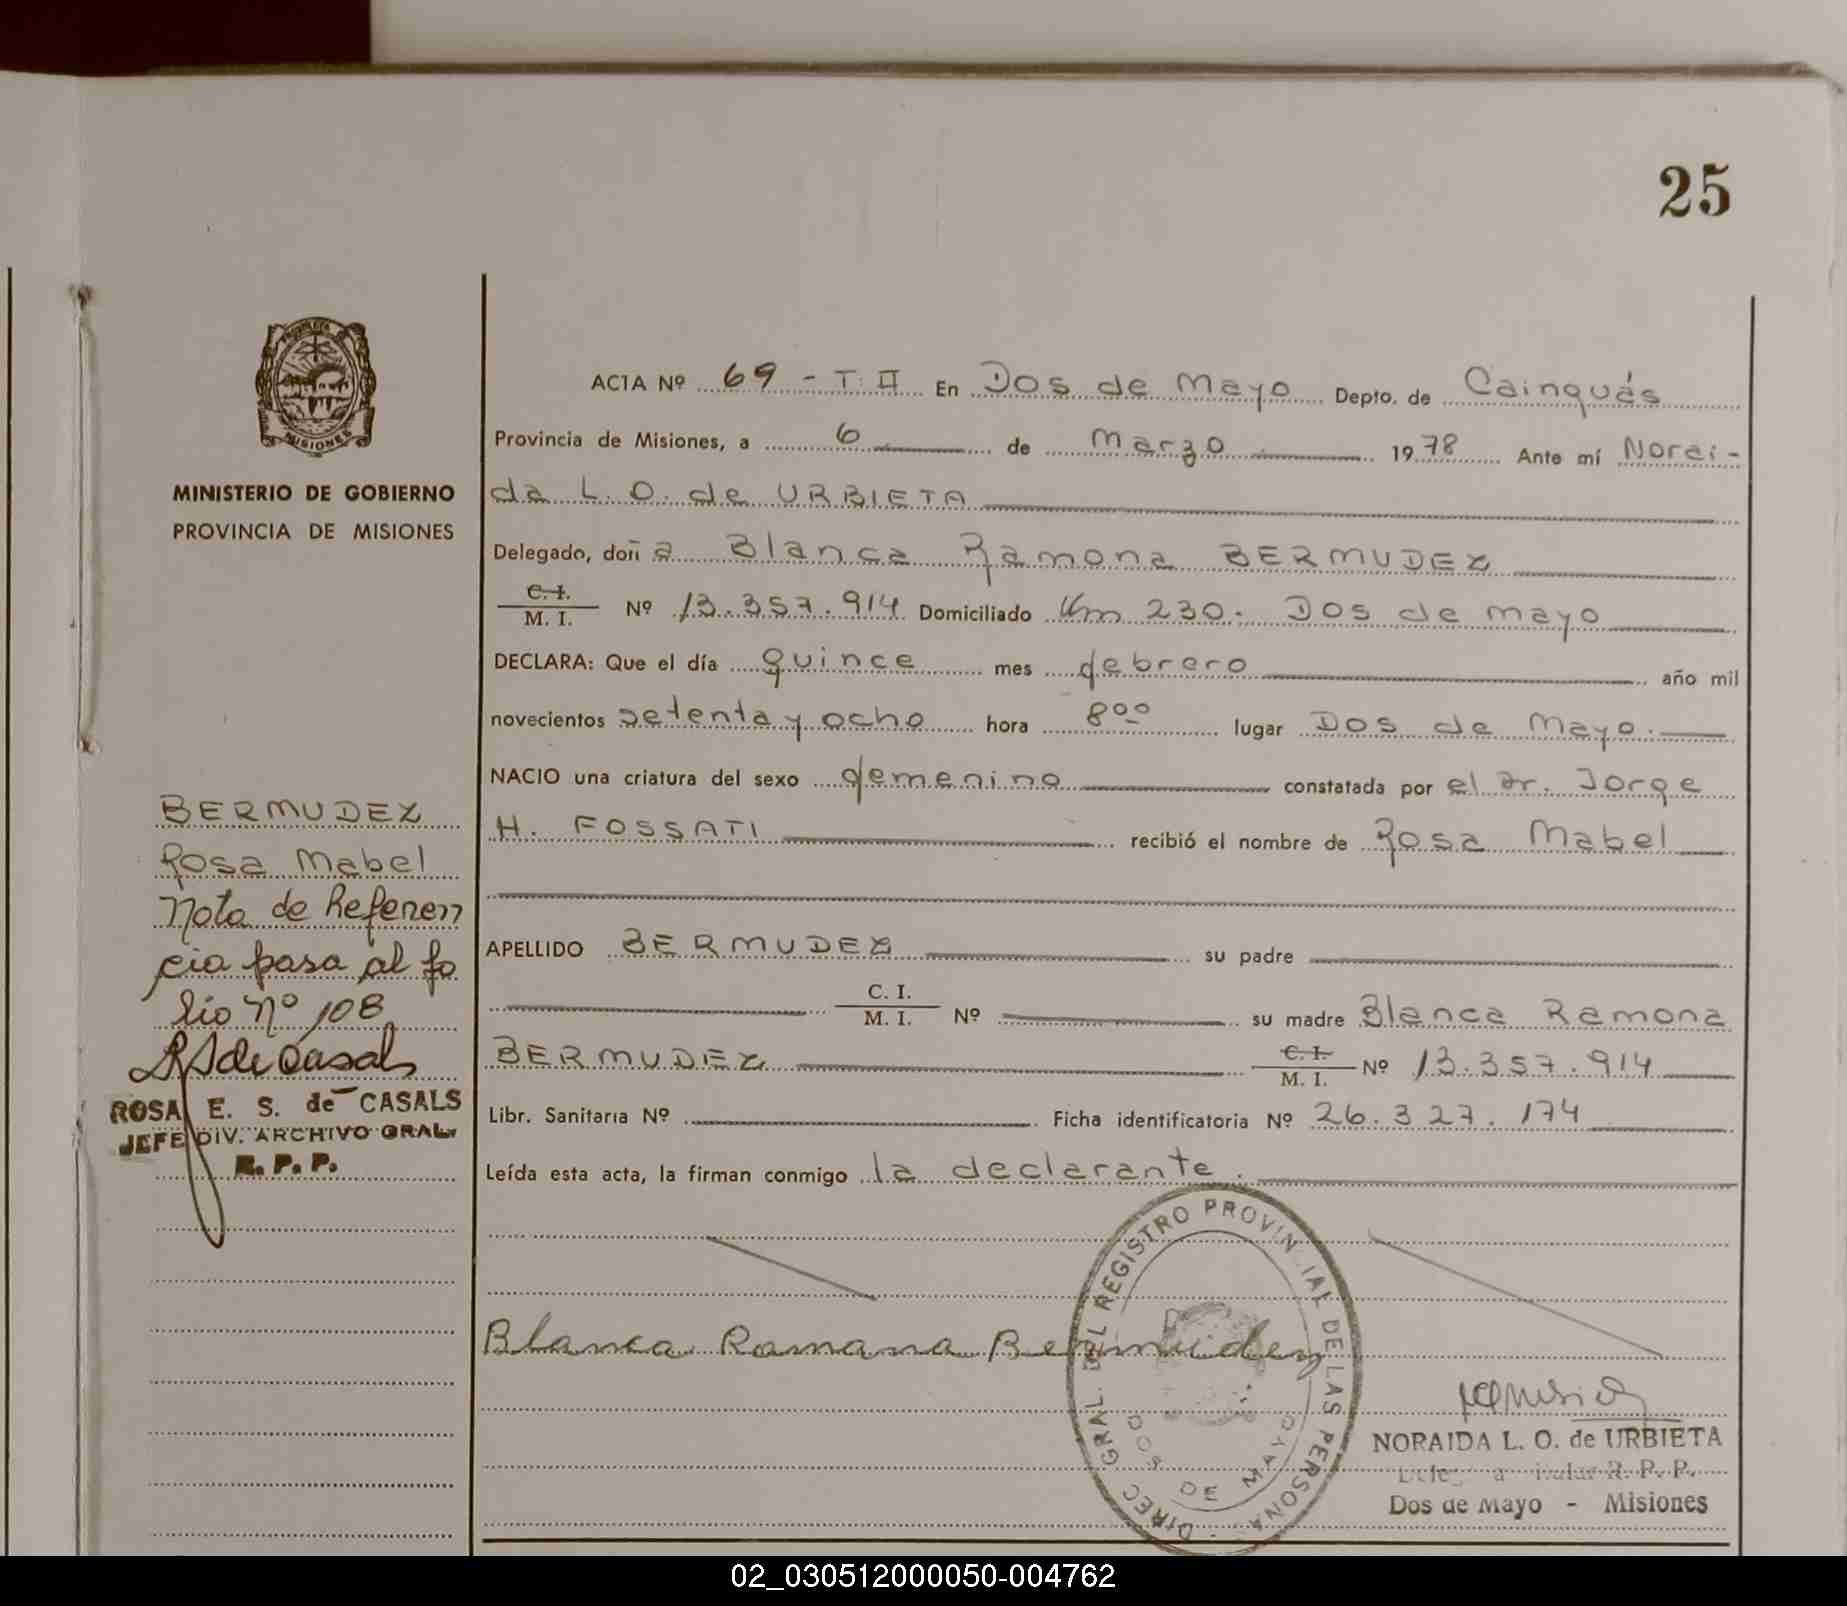 25
PROVINCIA DE
MISIONES
MINISTERIO DE GOBIERNO
PROVINCIA DE MISIONES
BERMUDEZ
Rosa Mabel
Nota de Referen
cia pasa al fo
lio Nº 108
RSdeCasals
ROSA E. S. de CASALS
JEFE DIV. ARCHIVO GRAL.
R. P. P.
ACTA Nº 69 - T. II En Dos de Mayo Depto. de Cainguás
Provincia de Misiones, a 6 de Marzo 1978 Ante mí Norai-
da L. O. de URBIETA
Delegado, doña Blanca Ramona BERMUDEZ
C. I.
M. I. Nº 13.357.914 Domiciliado Km 230. Dos de Mayo
DECLARA: Que el día quince mes febrero año mil
novecientos setenta y ocho hora 8⁰⁰ lugar Dos de Mayo.
NACIO una criatura del sexo femenino constatada por el Dr. Jorge
H. FOSSATI recibió el nombre de Rosa Mabel
APELLIDO BERMUDEZ su padre
C. I.
M. I. Nº su madre Blanca Ramona
BERMUDEZ C. I.
M. I. Nº 13.357.914
Libr. Sanitaria Nº Ficha identificatoria Nº 26.327.174
Leída esta acta, la firman conmigo la declarante.
DIREC GRAL. DEL REGISTRO PROVIN IAL DE LAS PERSONA
DOS DE MAYO
Blanca Ramona Bermudez
NORAIDA L. O. de URBIETA
R. P. P.
Dos de Mayo - Misiones
02_030512000050-004762